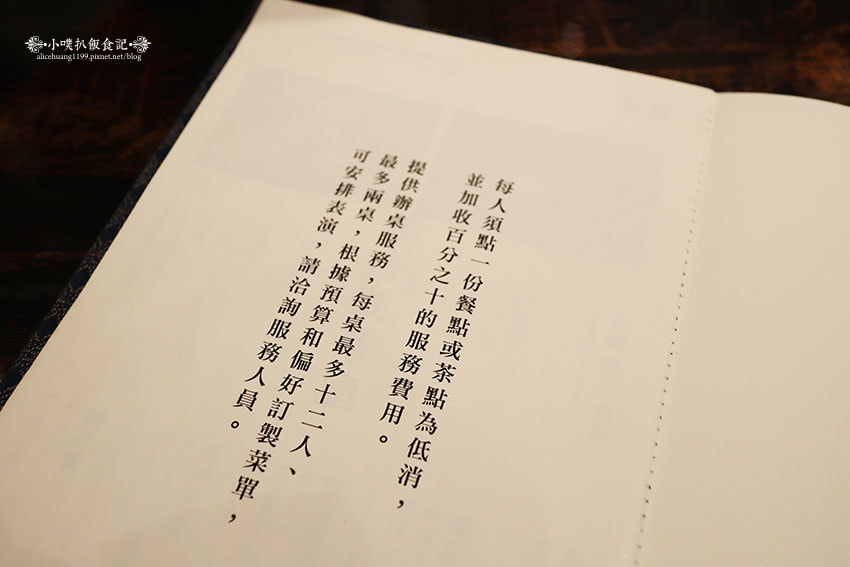 小噗扒飯食記
alicehuang1199.pixnet.net/blog
每人須點一份餐點或茶點為低消，
並加收百分之十的服務費用。
提供辦桌服務，每桌最多十二人、
最多兩桌，根據預算和偏好訂製菜單，
可安排表演，請洽詢服務人員。